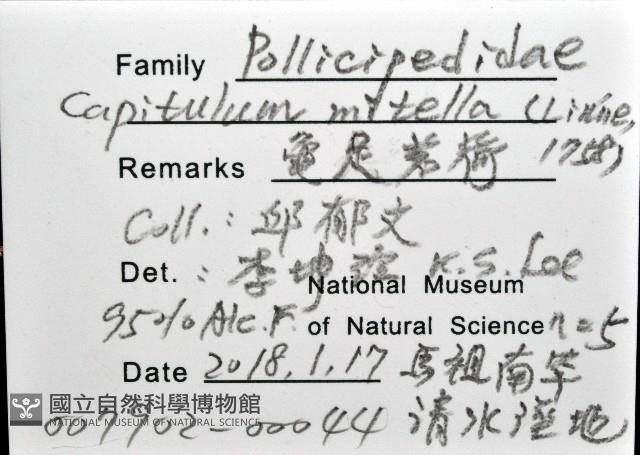 Family Pollicipedidae
Capitulum mitella (Linne, 1758)
Remarks 龜足茗荷
Coll.: 邱郁文
Det.: 李坤瑄 K.S. Lee
National Museum
95% Alc. F. of Natural Science n=5
Date 2018.1.17 馬祖南竿
國立自然科學博物館
NATIONAL MUSEUM OF NATURAL SCIENCE
007902-00044 清水溼地